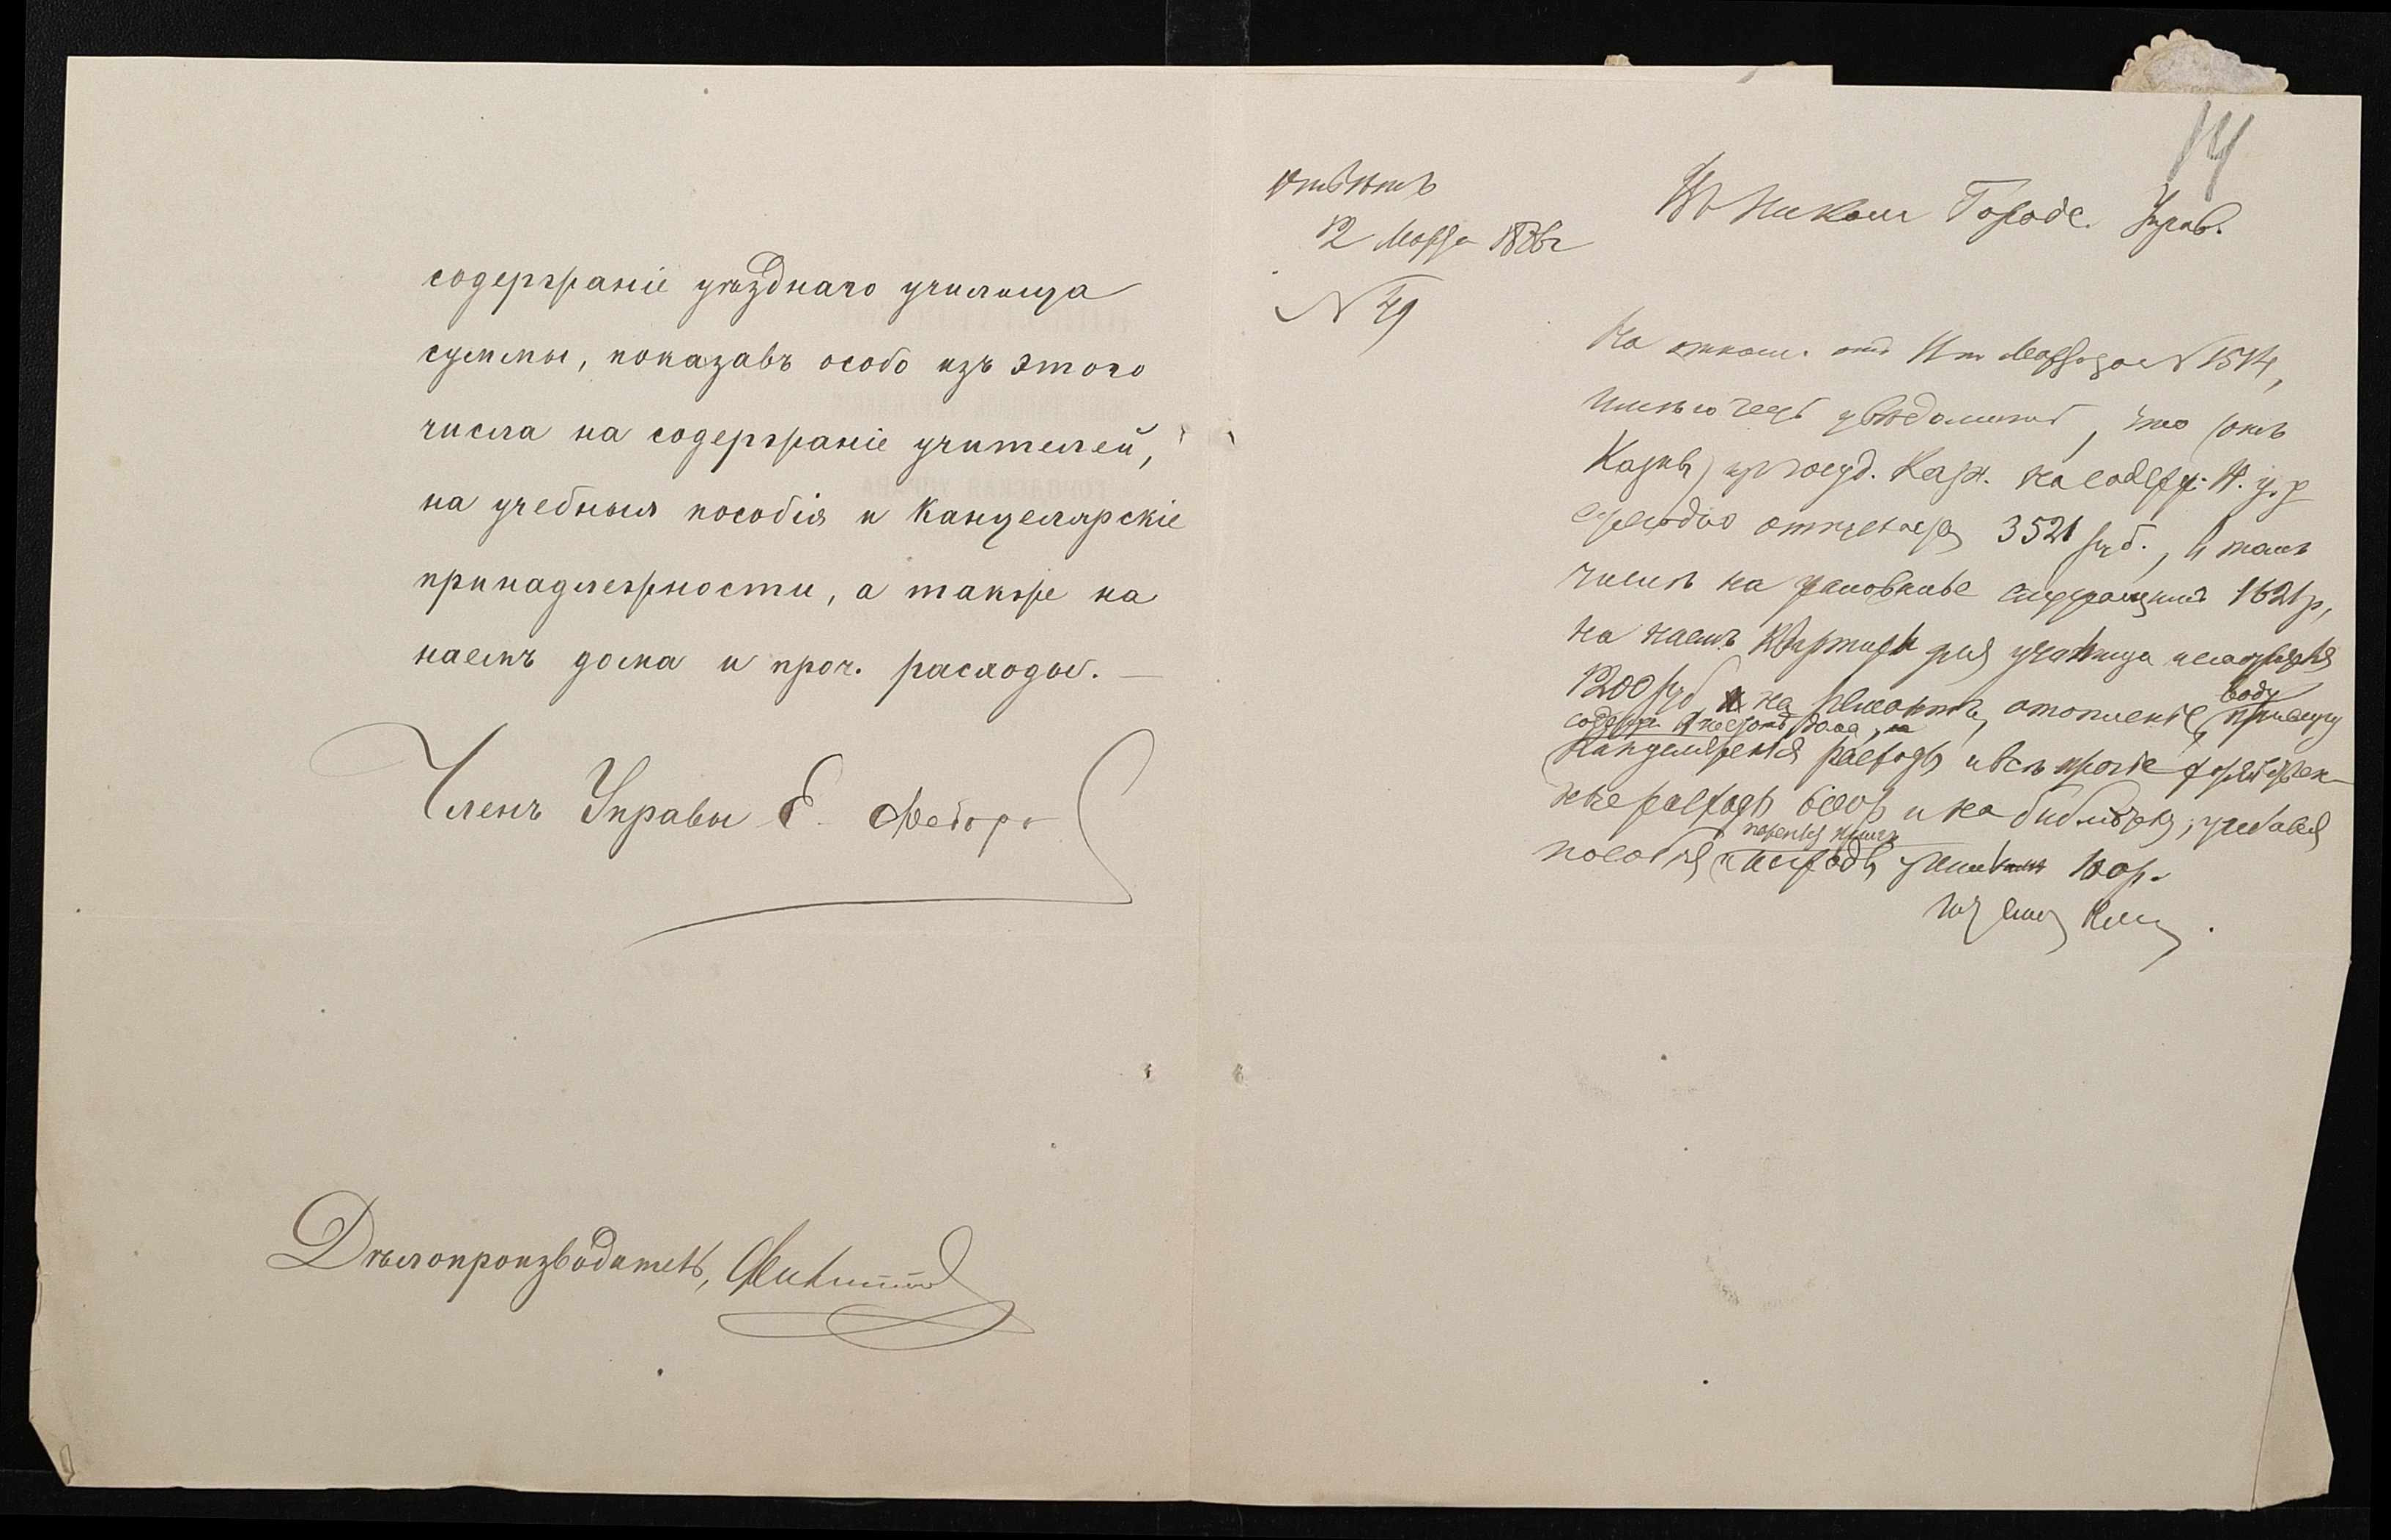 содержаніе уѣзднаго училища
суммы, показавъ особо изъ этого
числа на содержаніе учителей,
на учебныя пособія и Канцелярскіе
принадлежности, а также на
наемъ дома и проч. расходы. —
Членъ Управы Е.
Дѣлопроизводитель,
14
Отвѣтъ
12 Марта 1886 г
N 49
Въ Никол Городс. Управ.
На отнош. отъ 11 го Марта за N 1514,
имѣю честь увѣдомить, что
Казны) из госуд. Казн. на содерж. Н. у. у
ежегодно отпускается 3521 руб., въ томъ
числѣ на жалованье служащимъ 1621 р,
на наемъ квартиры для училища
1200 руб на ремонтъ, отопленіе,
воду
Канцелярскія расходы и всѣ прочіе
расходы 600 р и на библіотеку, учебныя
пособія 100 р.